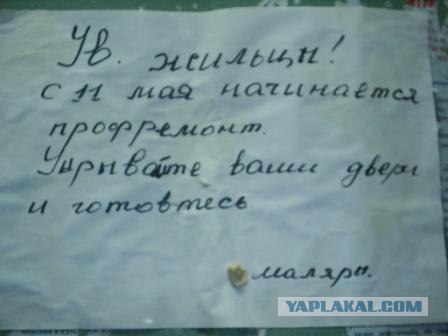 Ув. жильцы!
с 11 мая начинается
профремонт.
Укрывайте ваши двери
и готовтесь
маляры.
YAPLAKAL.COM